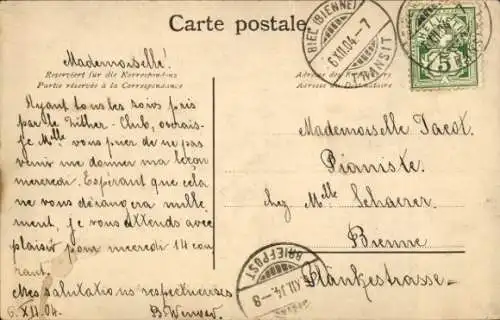 Carte postale
BIEL (BIENNE)
6 XII. 04.-7
TRANSIT
HELVETIA
5
Mademoiselle!
Reserviert für die Korrespondenz
Partie réservée à la Correspondance
Adresse des
Adresse du
Ayant tous les soirs pris
par le Zither-Club, oserais-
je Mlle vous prier de ne pas
venir me donner ma leçon
mercredi. Espérant que cela
ne vous dérangera nulle
ment, je vous attends avec
plaisir pour mercredi 14 cou
rant.
Mes salutations respectueuses
6.XII.04.
Mademoiselle Jacot.
Pianiste.
chez Mlle Schaerer.
Bienne
Plänkestrasse
BRIEFPOST
XII.04.-8